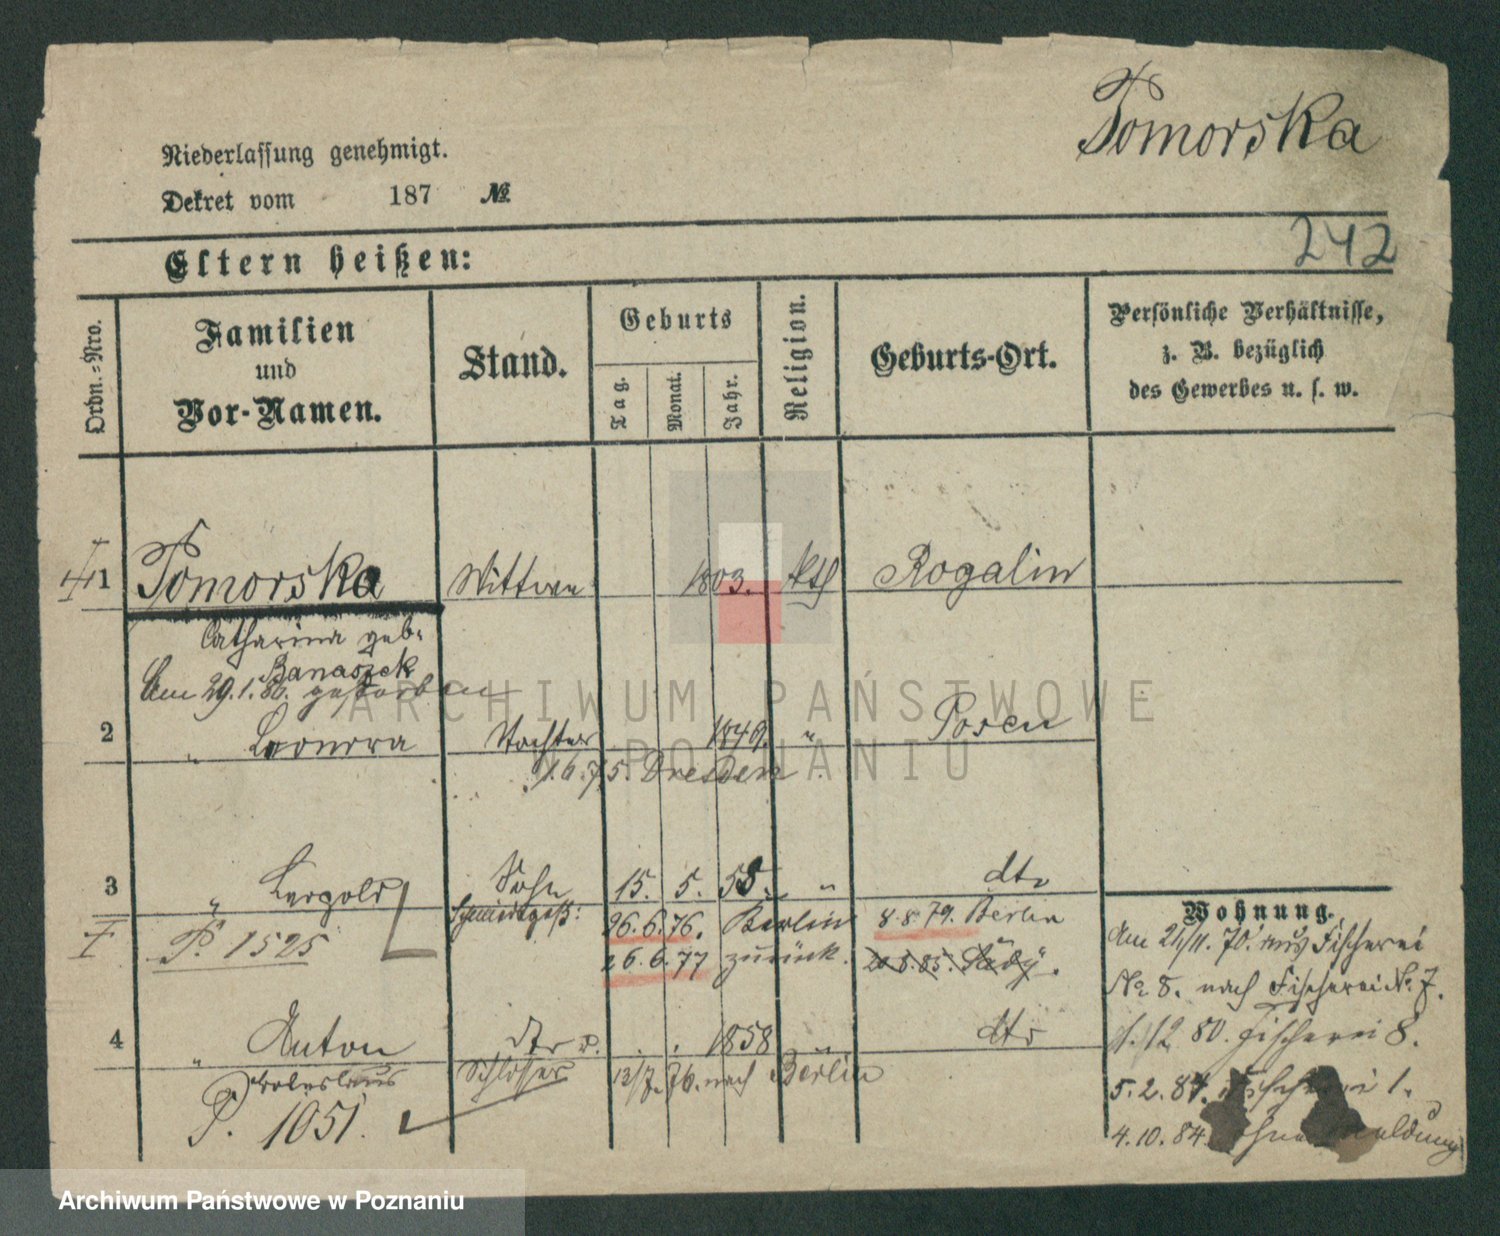 Pomorska
Niederlassung genehmigt.
Dekret vom 187 №
242
Eltern heißen:
Ordn.-Nro.
Familien
und
Vor-Namen.
Stand.
Geburts
Tag.
Monat.
Jahr.
Religion.
Geburts-Ort.
Persönliche Verhältnisse,
z. B. bezüglich
des Gewerbes u. s. w.
1 Pomorska Wittwe 1803. kth Rogalin
Catharina geb.
Banaszek
Am 29.1.80. gestorben
2 " Leonora Tochter 1849. " Posen
1.6.75. Dresden
3 " Leopold Sohn 15. 5. 55. " dto
26.6.76. Berlin 8.8.79. Berlin
P. 1525 26.6.77 zurück.
Wohnung.
Am 21/11. 70. aus Fischerei
No 8. nach Fischerei No. 7.
1.12 80. Fischerei 8.
5.2.84. Fischerei 1.
4.10.84. ohne Meldung
4 " Anton dto 1858 " dto
Schlosser 13/7. 76. nach Berlin
P. 1051.
ARCHIWUM PAŃSTWOWE
W POZNANIU
Archiwum Państwowe w Poznaniu